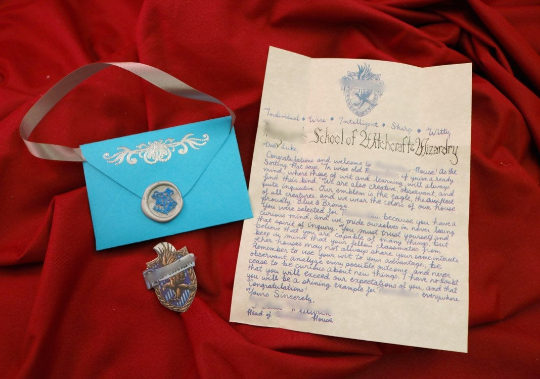 Individual • Wise • Intelligent • Sharp • Witty
School of Witchcraft & Wizardry
Congratulations and welcome to House! As the
Sorting Hat says: "In wise old if you've a ready
mind, where those of wit and learning will always
find their kind." We are also creative, observant, and
quite inquisitive. Our emblem is the eagle, the
of all creatures, and we wear the colors of our house
proudly: Blue & Bronze.
You were selected for because you have a
curious mind, and we pride ourselves in never losing
that spirit of inquiry. You must trust yourself and
believe that you are capable of many things, but
keep in mind that your fellow classmates from
other houses may not always share your same interests.
Remember to use your wit to your advantage, be
observant, analyze every possible outcome, and never
cease to be curious about new things. I have no doubt
that you will exceed our expectations of you, and that
you will be a shining example for everywhere.
Congratulations!
Yours Sincerely,
Head of House